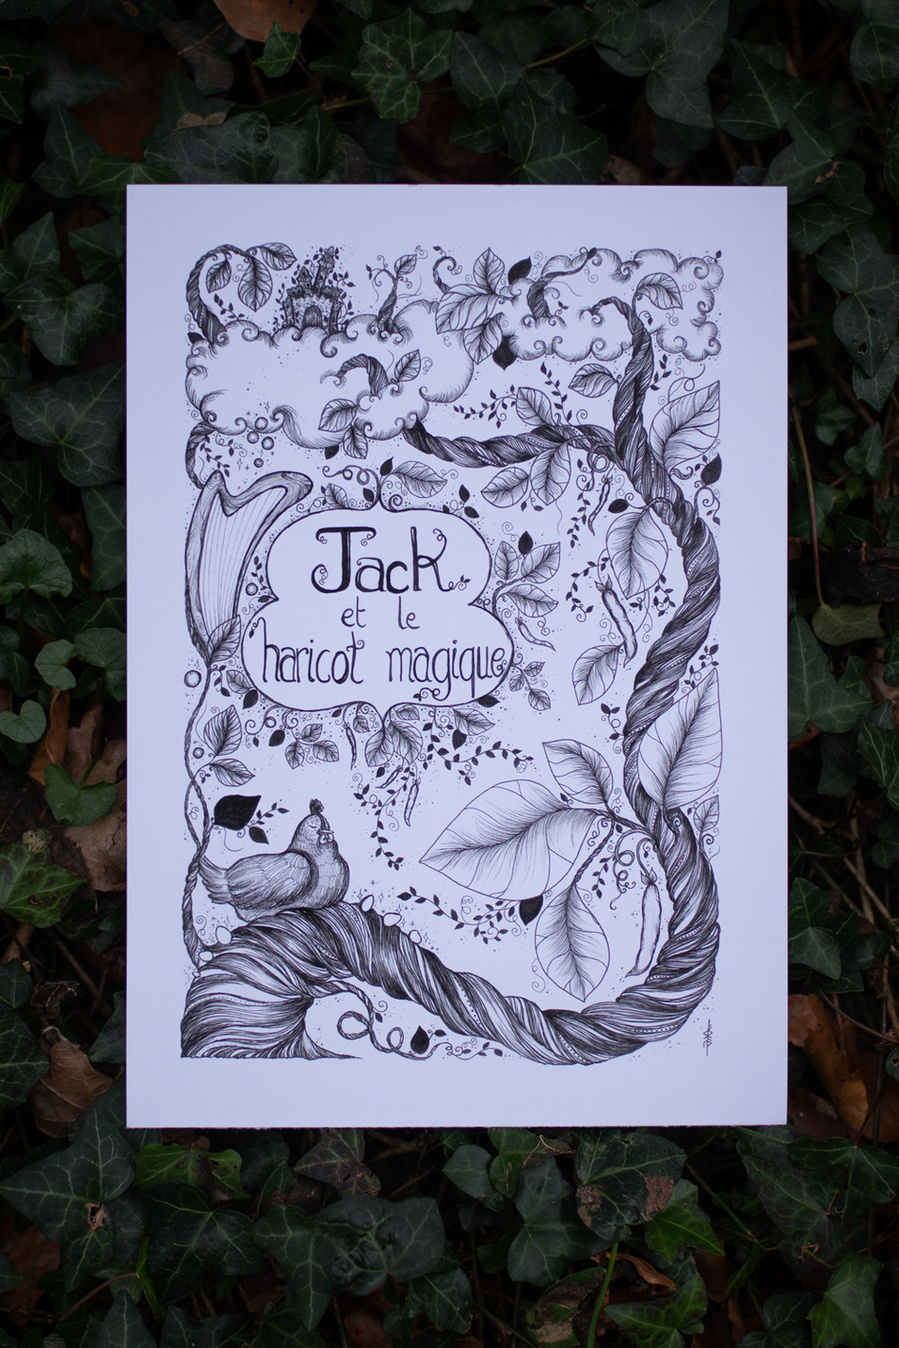 Jack
et le
haricot magique